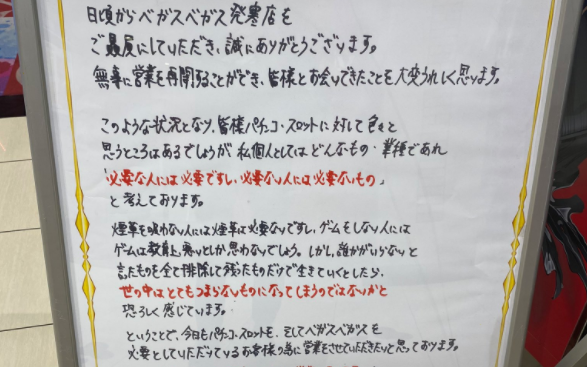 日頃からベガスベガス発寒店を
ご贔屓にしていただき、誠にありがとうございます。
無事に営業を再開することができ、皆様とお会いできたことを大変うれしく思います。
このような状況となり、皆様パチンコ・スロットに対して色々と
思うところはあるでしょうが、私個人としてはどんなもの・業種であれ
「必要な人には必要ですし、必要ない人には必要ないもの」
と考えております。
煙草を吸わない人には煙草は必要ないですし、ゲームをしない人には
ゲームは教育上、悪いとしか思わないでしょう。しかし、誰かがいらないと
言ったものを全て排除して残ったものだけで生きていくとしたら、
世の中はとてもつまらないものになってしまうのではないかと
恐ろしく感じています。
ということで、今日もパチンコ・スロットを、そしてベガスベガスを
必要としていただいているお客様の為に営業をさせていただきたいと思っております。